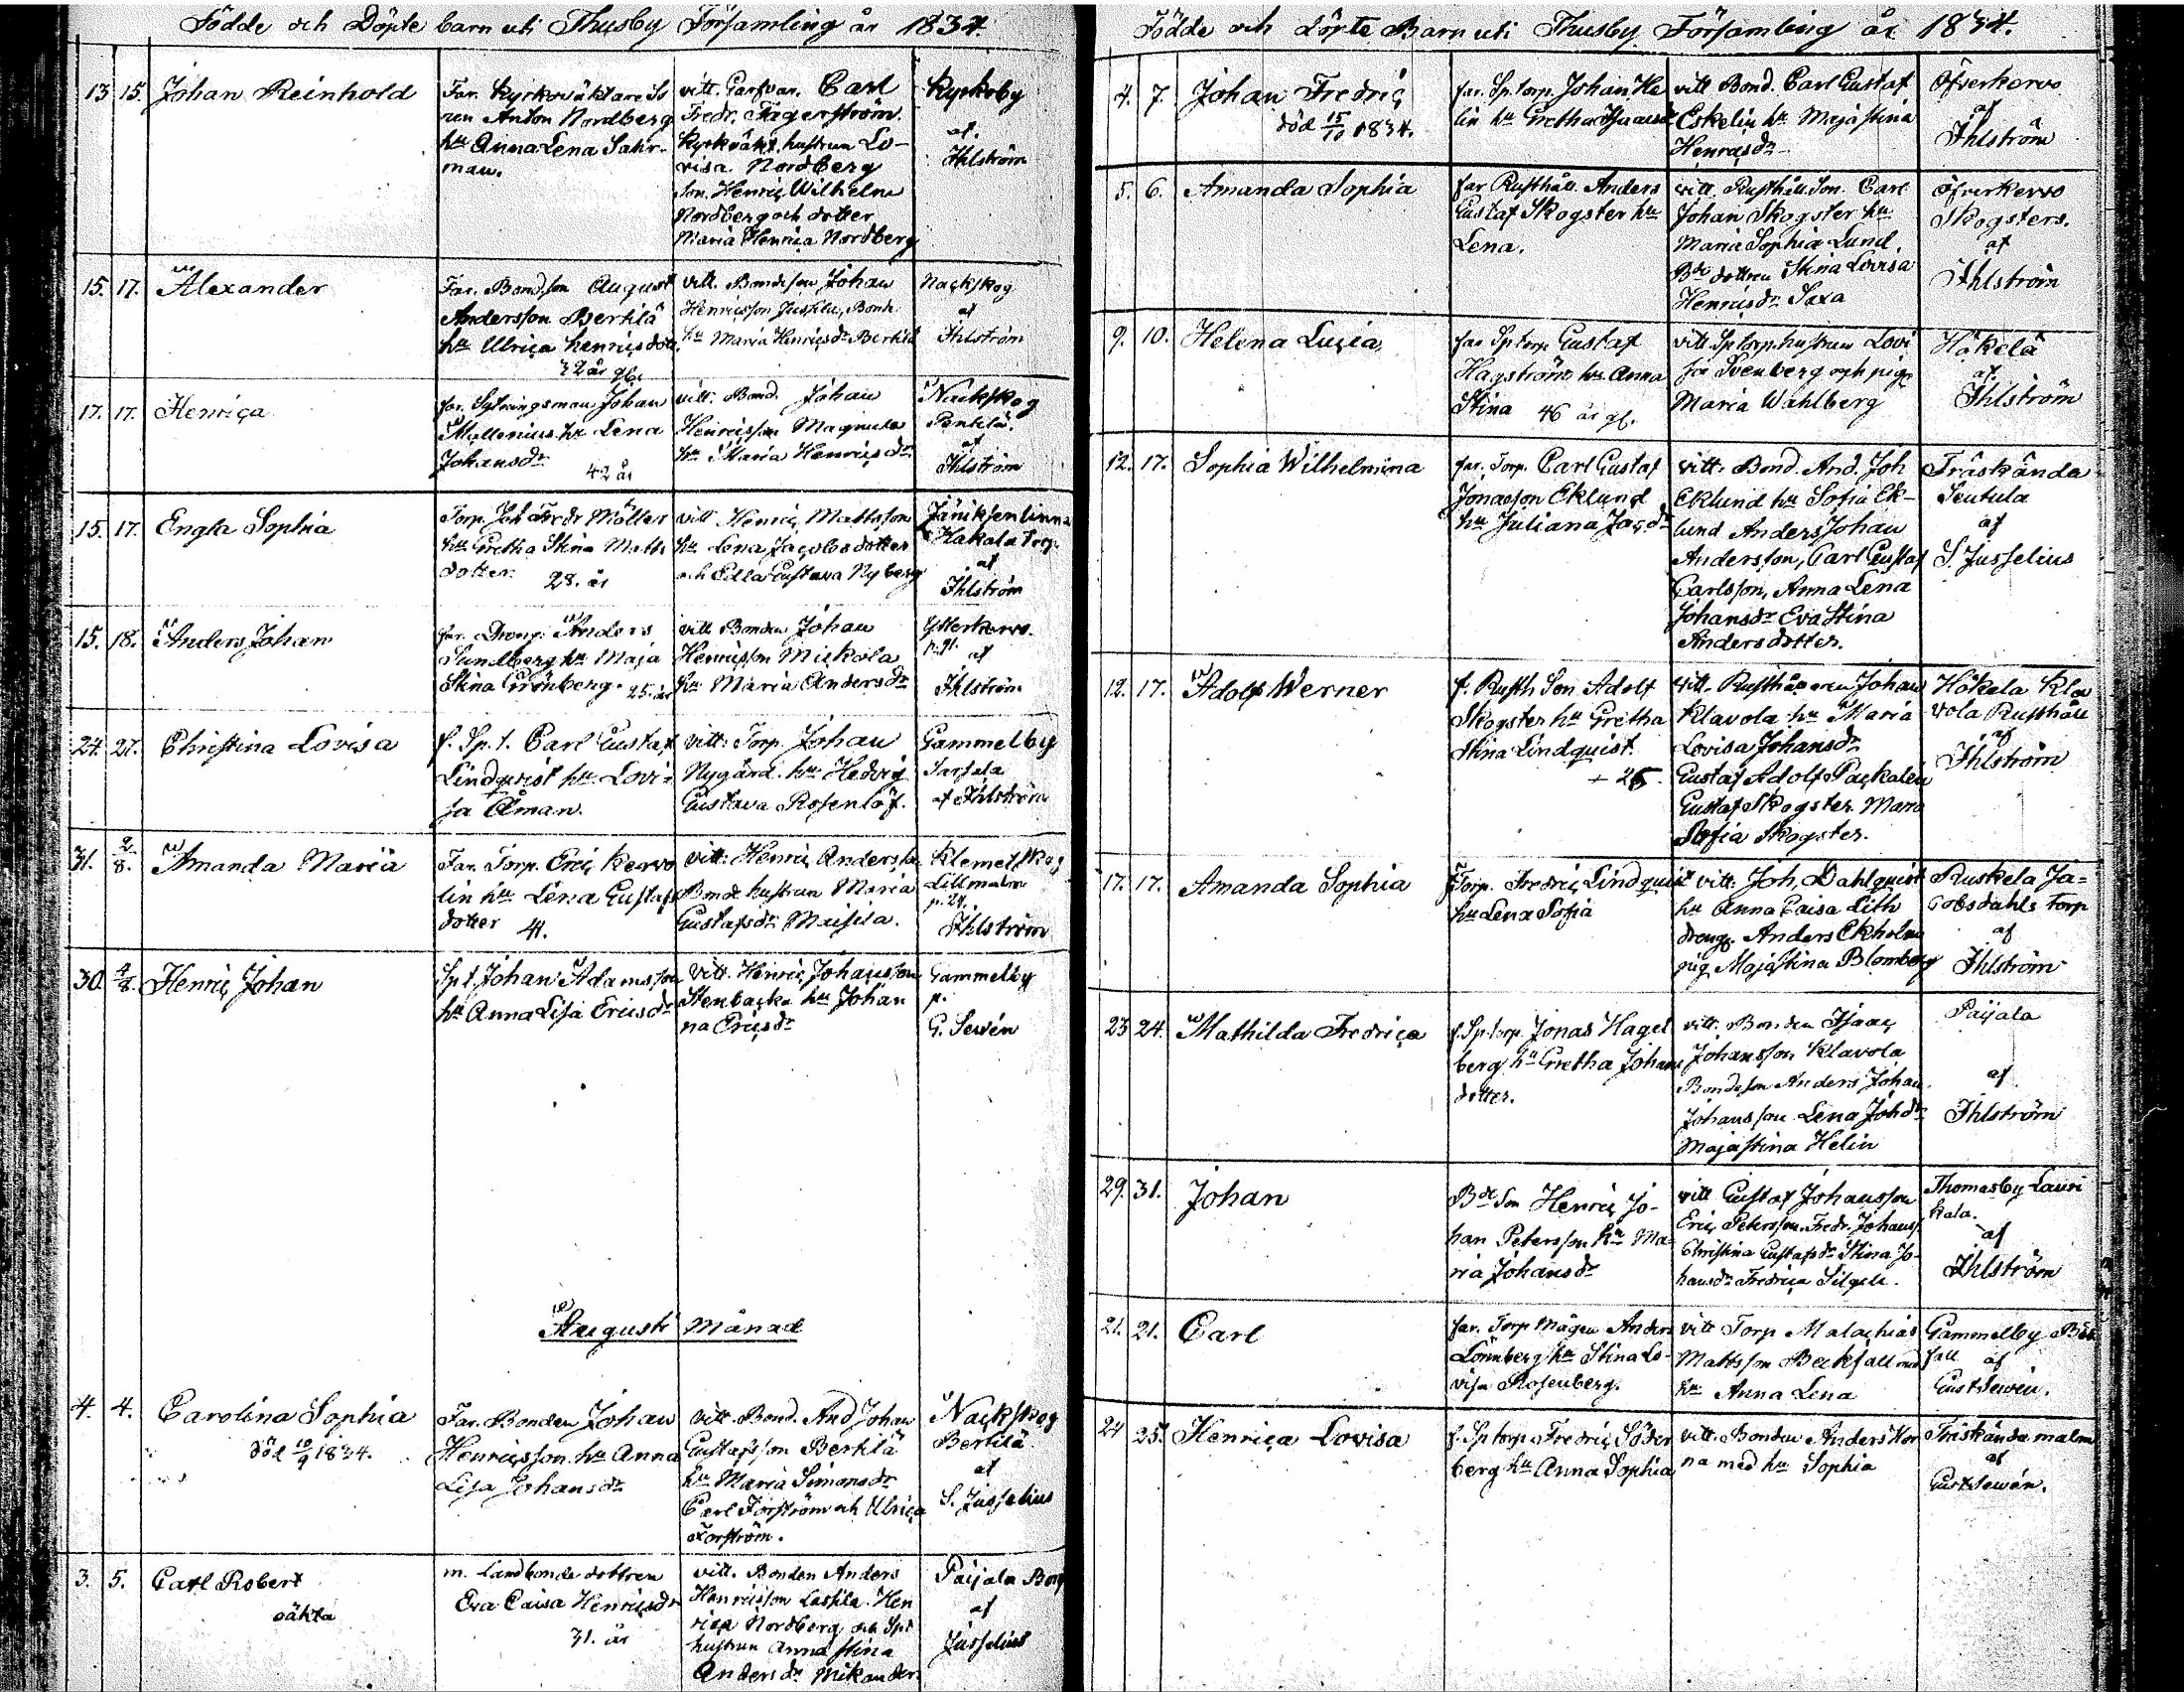 Födde och Döpte barn uti Thusby Församling år 1834.
13 15. Johan Reinhold
Far. Kyrkoväktare
ren Anton Nordberg
hu Anna Lena Sahr-
man.
vitt. Garfvar. Carl
Fredr. Fagerström.
Kyrkväkt. hustrun Lo-
visa Nordberg
Son. Henric Wilhelm
Nordberg och dotter
Maria Henrica Nordberg
Kyrkoby
af.
Ihlström
15. 17. Alexander
Far. Bondson August
Andersson Bertilä
hu Ulrica Henricsdott.
32 år gl.
vitt. Bondeson Johan
Henricsson Jussila, Bond.
hu Maria Henricsdr Bertilä
Nackskog
af
Ihlström
17. 17. Henrica
far. Sytningsman Johan
Myllenius hu Lena
Johansdr
42 år
vitt. Bond. Johan
Henricsson Magnula
hu Maria Henricsdr
Nackskog
Pentilä.
af
Ihlström
15. 17. Engla Sophia
Torp. Joh Fredr Möller
hu Gretha Stina Matts
dotter. 28. år
vitt Henric Mattsson
hu Lena Jacobsdotter
och Edla Gustava Nyberg
Jäniksenlinna
Kakala torp.
af
Ihlström
15. 18. Anders Johan
far. Dreng. Anders
Sundberg hu Maja
Stina Grönberg. 25. år
vitt Bonden Johan
Henricsson Mickola
hu Maria Andersdr
Ytterkervo.
af
Ihlström
24. 27. Christina Lovisa
f. Sp. t. Carl Gustaf
Lindqvist hu Lovi-
sa Öman.
vitt: Torp. Johan
Nygård. hu Hedvig
Gustava Rosenlöf.
Gammelby
Sarsala
af Ihlström
31. 2/8. Amanda Maria
Far. Torp. Eric Kervo
lin hu Lena Gustafs
dotter 41.
vitt: Henric Andersson
Bonde hustrun Maria
Gustafsdr Maisila.
Klemetskog
Lillmalm
p. 24.
Ihlström
30. 4/8. Henric Johan
Sp t. Johan Adamsson
hu Anna Lisa Ericsdr
vitt. Henric Johansson
Stenbacka hu Johan
na Ericsdr
Gammelby
p.
G. Sevén
Augusti Månad
4. 4. Carolina Sophia
död 10/9 1834.
Far. Bonden Johan
Henricsson. hu Anna
Lisa Johansdr
vitt. Bond. And Johan
Gustafsson Bertilä
hu Maria Simonsdr
Carl Forsström och Ulrica
Forsström.
Nackskog
Bertilä
af
S. Jusselius
3. 5. Carl Robert
oäkta
m. Landbonde dottren
Eva Caisa Henricsdr
31. år
vitt. Bonden Anders
Henricsson Laskila. Hen
rica Nordberg och Sp t
hustrun Anna Stina
Andersdr Mikander.
Paijala
af
Jusselius
Födde och Döpte Barn uti Thusby Församling år 1834.
4. 7. Johan Fredric
död 15/10 1834.
far. Sp. torp. Johan He
lin hu Gretha Isaacsd
vitt Bond. Carl Gustaf
Eskelin hu Maja Stina
Henricsdr
Öfverkervo
af
Ihlström
5. 6. Amanda Sophia
far Rusthåll. Anders
Gustaf Skogster hu
Lena.
vitt. Rusthåll.Son. Carl
Johan Skogster hu
Maria Sophia Lund.
Bde dottren Stina Lovisa
Henricsdr Saxa
Öfverkervo
Skogsters.
af
Ihlström
9. 10. Helena Lucia,
far Sp torp Gustaf
Hagström hu Anna
Stina 46 år gl.
vitt Sp torp.hustrun Lovi
sa Svenberg och pig.
Maria Wahlberg
Hökelä
af.
Ihlström
12. 17. Sophia Wilhelmina
far. Torp. Carl Gustaf
Jonasson Eklund
hu Juliana Jacsdr
vitt. Bond. And. Joh
Eklund hu Sofia Ek-
lund Anders Johan
Andersson, Carl Gustaf
Carlsson, Anna Lena
Johansdr Eva Stina
Andersdotter.
Träskända
Scutula
af
S. Jusselius
12. 17. Adolf Werner
f. Rusth Son Adolf
Skogster hu Gretha
Stina Lindquist.
vitt. Rusthållaren Johan
Klavola hu Maria
Lovisa Johansdr
Gustaf Adolf Packalen
Gustaf Skogster Maria
Sofia Skogster.
Hökela Kla
vola Rusthåll
af
Ihlström
17. 17. Amanda Sophia
Torp. Fredric Lindquist
hu Lena Sofia
vitt: Joh. Dahlquist
hu Anna Caisa Lith
dreng. Anders Ekholm
pig. Maja Stina Blomberg
Ruskela Ja-
cobsdahls Torp
af
Ihlström
23 24. Mathilda Fredrica
f. Sp. torp. Jonas Hagel
berg hu Gretha Johans
dotter.
vitt. Bonden Isaac
Johansson Klavola
Bondeson Anders Johan
Johansson Lena Johdr
Maja Stina Helin
Paijala
af
Ihlström
29. 31. Johan
Bde Son Henric Jo-
han Petersson hu Ma-
ria Johansdr
vitt Gustaf Johansson
Eric Petersson. Fredr. Johanss
Christina Gustafsdr Stina Jo-
hansdr Fredrica Silgell.
Thomasby Lauri
kala.
af
Ihlström
21. 21. Carl
far. Torp Mågen Anders
Lönnberg hu Stina Lo-
visa Rosenberg.
vitt Torp Malachias
Mattsson Beckfall med
hu Anna Lena
Gammelby Bäck
fall af
Gust Sewén.
24 25. Henrica Lovisa
f. Sp torp. Fredric Söder
berg hu Anna Sophia
vitt. Bonden Anders Kor
na med hu Sophia
Träskända malm
af
Gust Sewén.